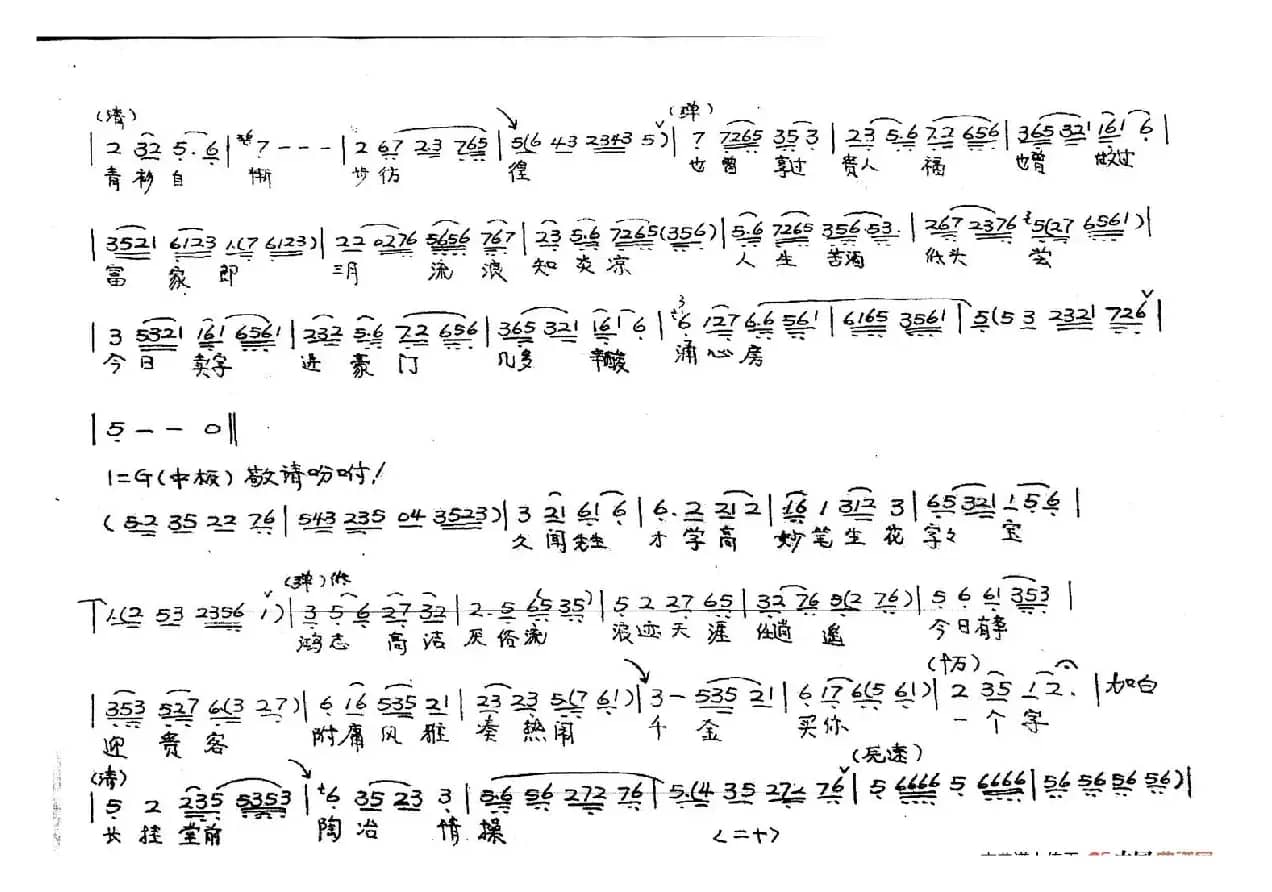 (清)
| 2 32 5.6 | 7 - - - | 2 67 23 765 | 5(6 43 2343 5) | (弹) 7 7265 35 3 | 23 5.6 72 656 | 365 321 161 6 |
青衫自惭 步彷徨 也曾享过贵人福 也曾做过
| 3521 6123 1.(7 6123) | 22 0276 5656 767 | 23 5.6 7265(356) | 5.6 7265 356 53. | 267 2376 5(27 6561) |
富家郎 三月流浪知炎凉 人生苦酒低头尝
| 3 5321 161 6561 | 232 5.6 72 656 | 365 321 161 6 | 6 127 6.6 561 | 6165 3561 | 5(5 3 2321 726 |
今日卖字进豪门 几多辛酸涌心房
| 5 - - 0 ‖
1=G(中板) 敬请吩咐!
( 52 35 22 76 | 543 235 04 3523) | 3 21 61 6 | 6. 2 21 2 | 16 1 312 3 | 65 321 1 5 6 |
久闻先生才学高 妙笔生花字字宝
1.(2 53 2356 1) | (弹) 3 5 6 27 32 | 2. 5 65 35) | 5 2 27 65 | 32 76 5(2 76) | 5 6 61 353 |
鸿志高洁厌俗流 浪迹天涯任逍遥 今日有幸
| 353 527 6(3 27) | 6 16 535 21 | 23 23 5(7 61) | 3 - 535 21 | 6 17 6(5 61) | (十万) 2 35 1 2. | 加白
迎贵客 附庸风雅凑热闹 千金买你一个字
(清)
| 5 2 235 5353 | 6 35 23 3 | 5.6 56 272 76 | 5.(4 35 272 76 | 5 6666 5 6666 | 56 56 56 56) |
长挂堂前陶冶情操 <二十>